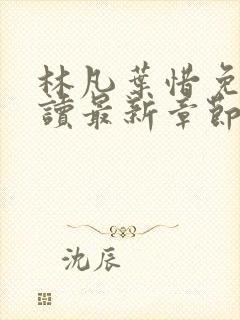 林凡葉惜免
讀最新章節
沈辰